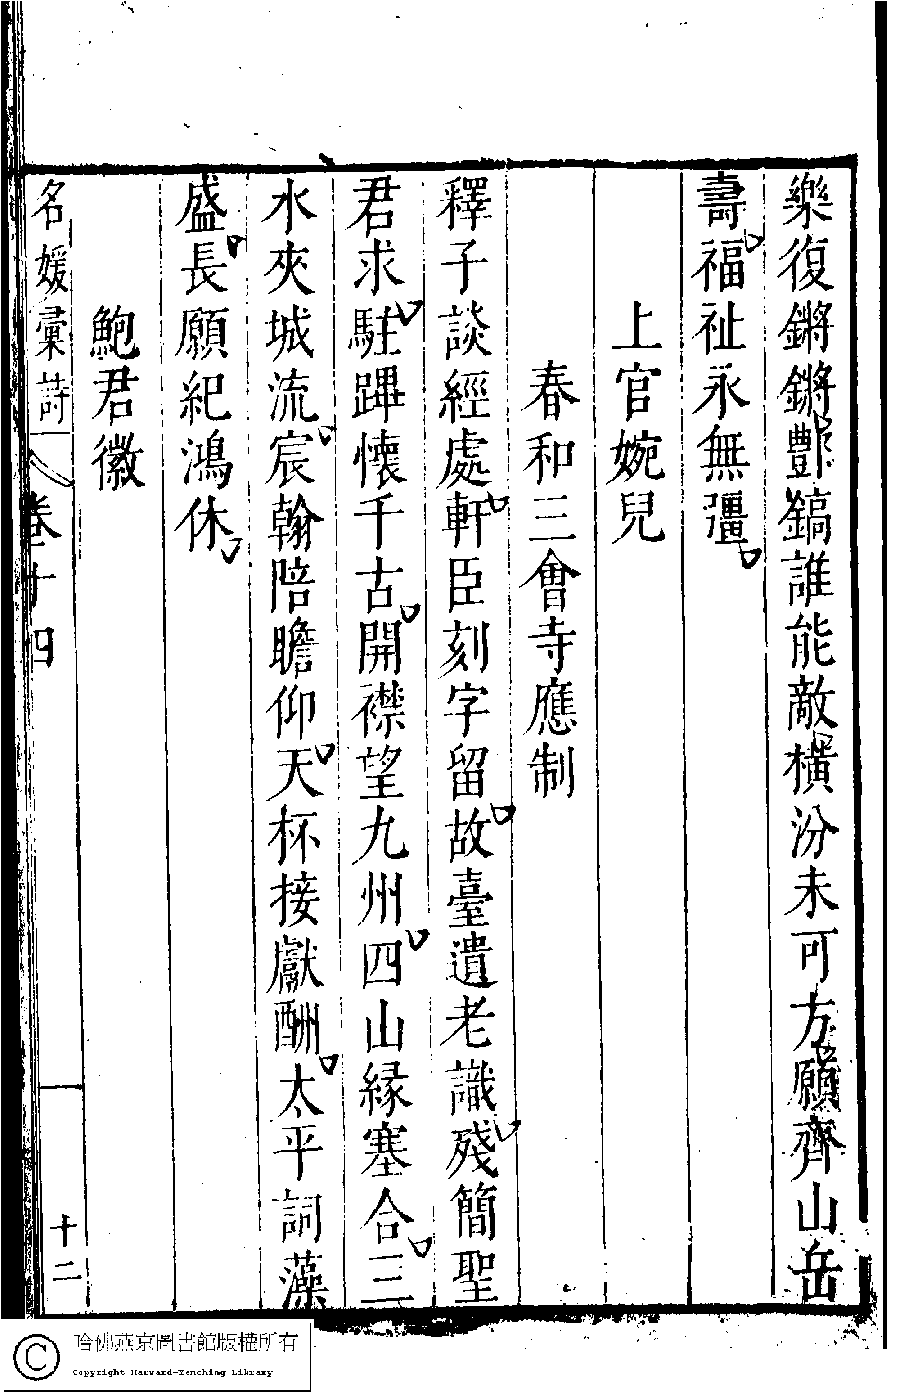 樂復鏘鏘酆鎬誰能敵橫汾未可方願齊山岳
壽福祉永無彊
上官婉兒
春和三會寺應制
釋子談經處軒臣刻字留故臺遺老識殘簡聖
君求駐蹕懷千古開襟望九州四山緣塞合三
水夾城流宸翰陪瞻仰天杯接獻酬太平詞藻
盛長願紀鴻休
鮑君徽
名媛彙詩 卷十四 十二
哈佛燕京圖書館版權所有
Copyright Harvard-Yenching Library